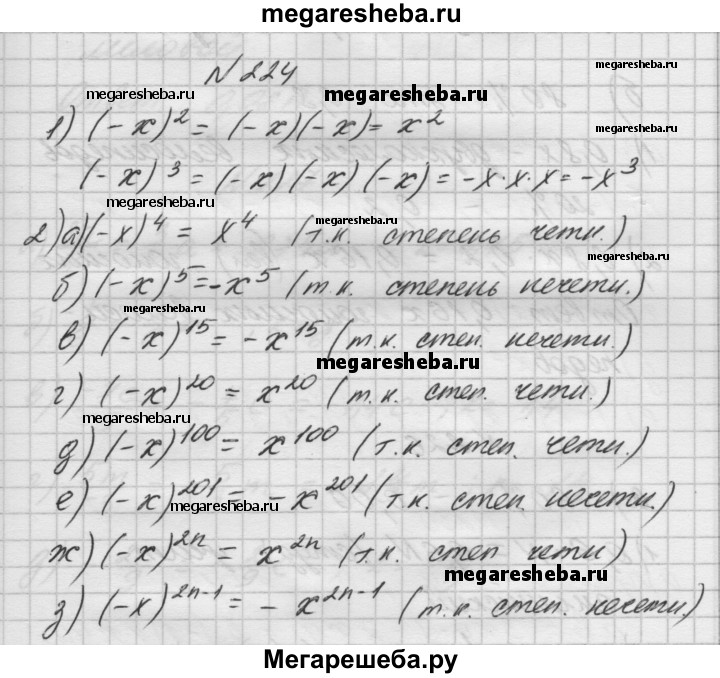 megaresheba.ru
№ 224
megaresheba.ru
megaresheba.ru
1) (-x)² = (-x)(-x) = x²
megaresheba.ru
(-x)³ = (-x)(-x)(-x) = -x·x·x = -x³
megaresheba.ru
megaresheba.ru
2) а) (-x)⁴ = x⁴ (т.к. степень четн.)
б) (-x)⁵ = -x⁵ (т.к. степень нечетн.)
megaresheba.ru
в) (-x)¹⁵ = -x¹⁵ (т.к. степ. нечетн.)
megaresheba.ru
г) (-x)²⁰ = x²⁰ (т.к. степ. четн.)
megaresheba.ru
д) (-x)¹⁰⁰ = x¹⁰⁰ (т.к. степ. четн.)
е) (-x)²⁰¹ = -x²⁰¹ (т.к. степ. нечетн.)
megaresheba.ru
ж) (-x)²ⁿ = x²ⁿ (т.к. степ четн)
megaresheba.ru
з) (-x)²ⁿ⁻¹ = -x²ⁿ⁻¹ (т.к. степ. нечетн.)
Мегарешеба.ру